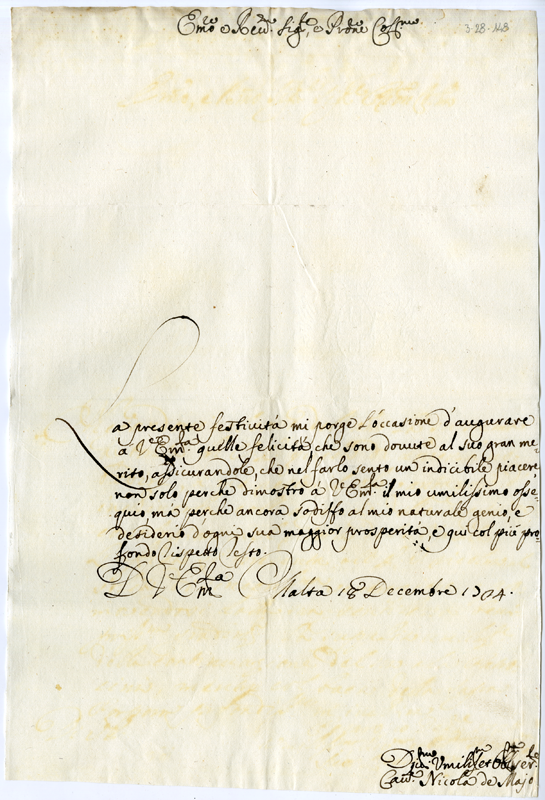 Emo e Revmo. Sigre, e Prone Colmo.
3-28-148
La presente festivitá mi porge l'occasione d'augurare
a Vra Emza. quelle felicitá, che sono dovute al suo gran me-
rito, assicurandole, che nel farlo sento un indicibile piacere,
non solo perche dimostro á Vra Emza. il mio umilissimo osse-
quio, má perche ancora sodisfo al mio naturale genio, e
desiderio d'ogni sua maggior prosperitá, e qui col piú pro-
fondo rispetto resto.
D V. Emza Malta 18 Decembre 1704.
Umilissmo
Cavr. Nicola de Majo